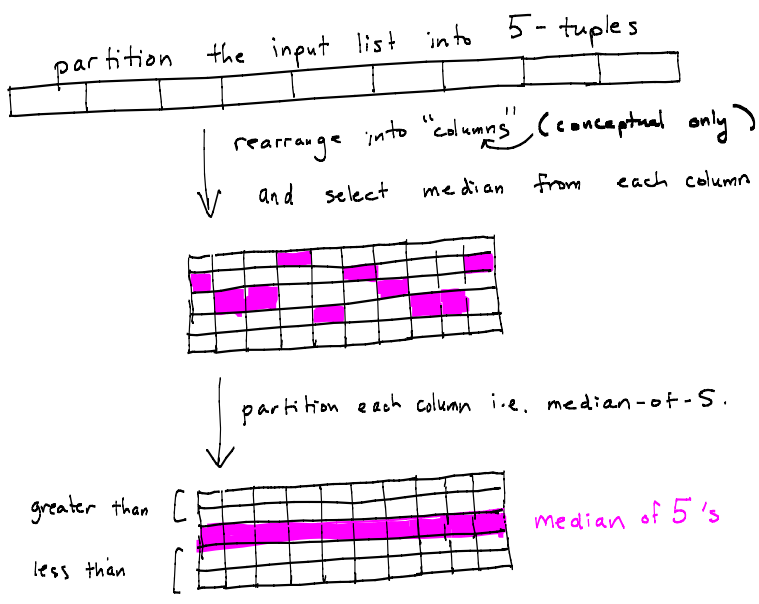 partition the input list into 5-tuples
rearrange into "columns" (conceptual only)
and select median from each column
partition each column i.e. median-of-5.
greater than [
median of 5's
less than [